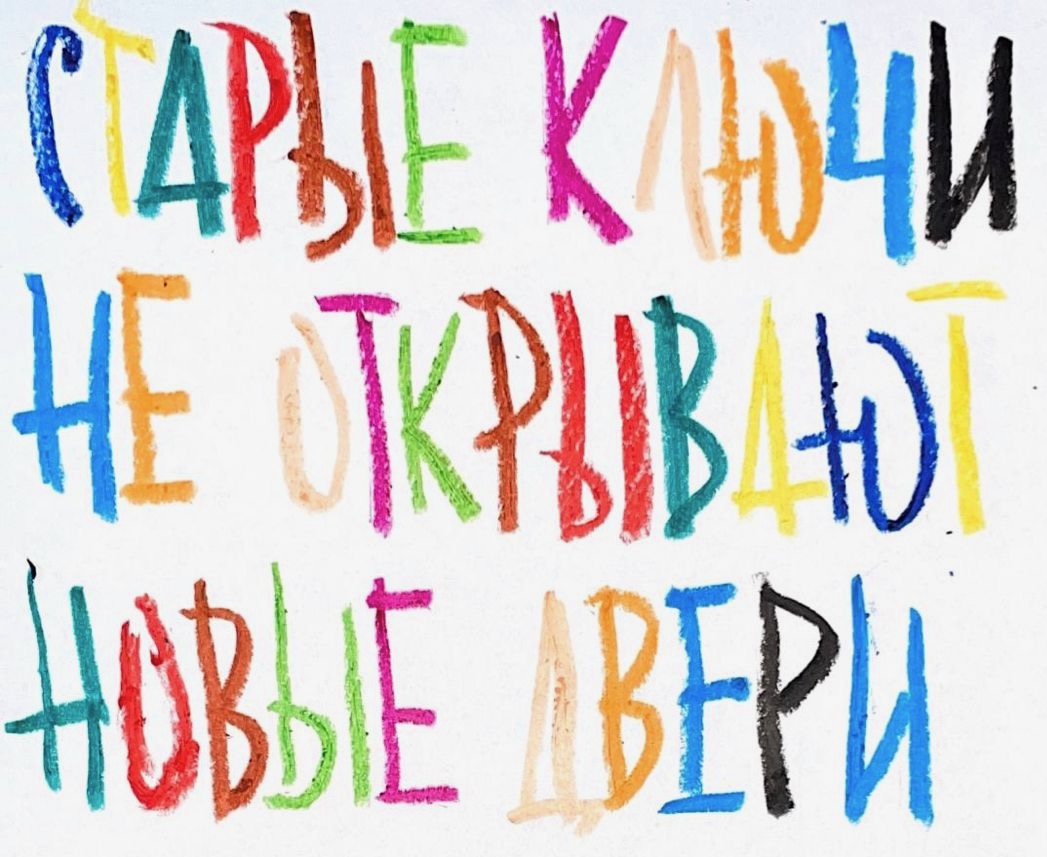 СТАРЫЕ КЛЮЧИ
НЕ ОТКРЫВАЮТ
НОВЫЕ ДВЕРИ